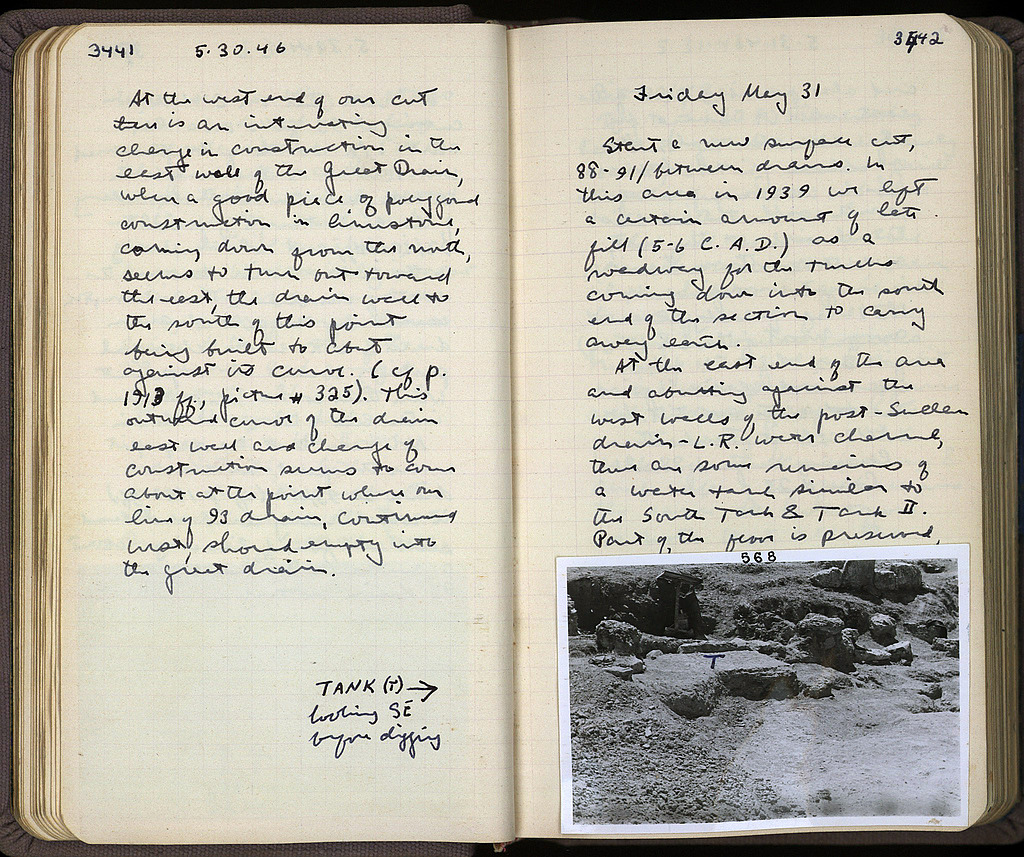 3441
5.30.46
At the west end of our cut
there is an interesting
change in construction in the
east wall of the Great Drain,
when a good piece of polygonal
construction in limestone,
coming down from the north,
seems to turn out toward
the east, the drain wall to
the south of this point
being built to abut
against its curve. (cf p.
1913 ff., picture # 325). This
outward curve of the drain
east wall and change of
construction seems to come
about at the point where our
line of 93 drain, continued
west, should empty into
the great drain.
TANK (T) →
looking SE
before digging
3442
Friday May 31
Start a new surface cut,
88-91/ between drains. In
this area in 1939 we left
a certain amount of late
fill (5-6 C. A.D.) as a
roadway for the trucks
coming down into the south
end of the section to carry
away earth.
At the east end of the area
and abutting against the
west walls of the post-Sullan
drain-L.R. water channel,
there are some remains of
a water tank similar to
the South Tank & Tank II.
Part of the floor is preserved,
568
T